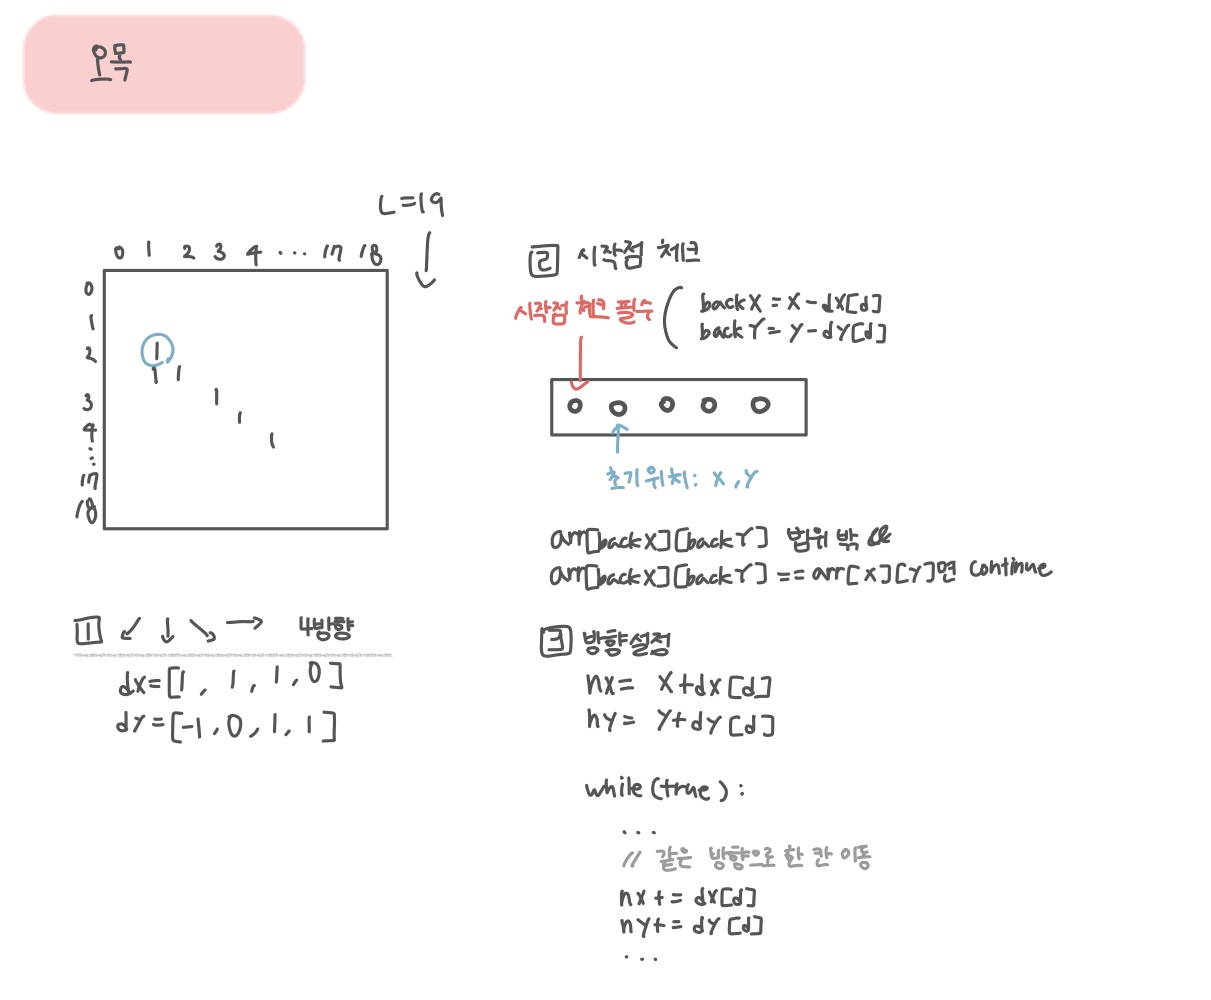 오목
L=19
0 1 2 3 4 ... 17 18
0
1
2 1
1 1
3 1
4 1
: 1
17
18
1 ↙ ↓ ↘ → 4방향
dx=[1, 1, 1, 0]
dy=[-1, 0, 1, 1]
2 시작점 체크
시작점 체크 필수
backX = X-dX[d]
backY = y-dy[d]
초기위치: x, y
arr[backX][backY] 범위 밖
arr[backX][backY] == arr[x][y]면 continue
3 방향설정
nx= x+dx[d]
ny= y+dy[d]
while(true):
...
// 같은 방향으로 한 칸 이동
nx += dx[d]
ny += dy[d]
...